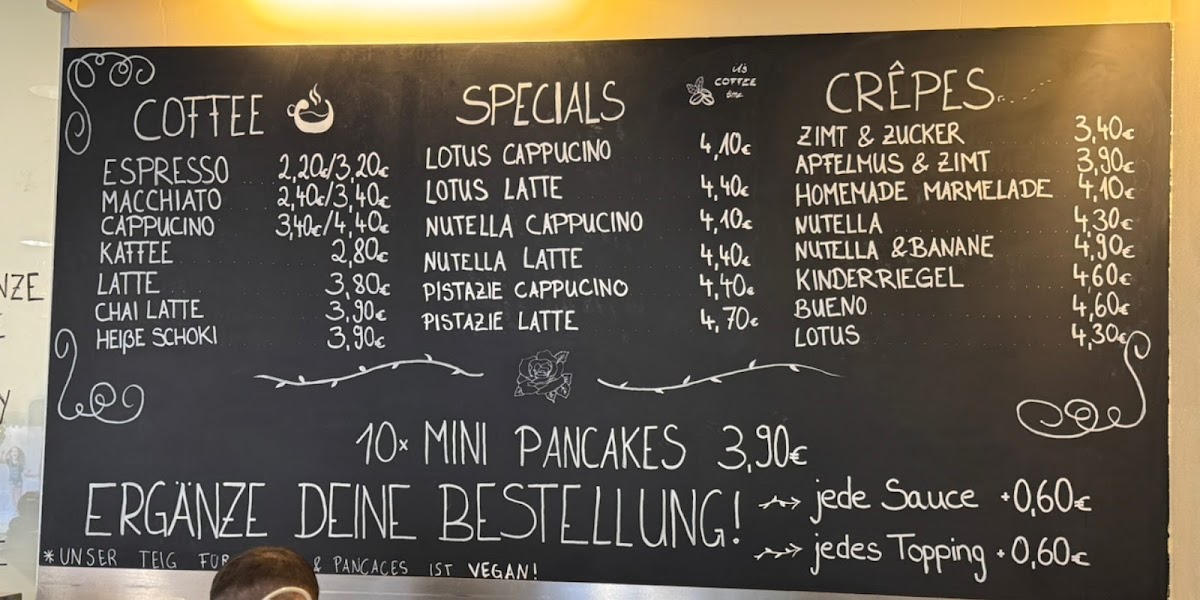 COFFEE
ESPRESSO 2,20€/3,20€
MACCHIATO 2,40€/3,40€
CAPPUCINO 3,40€/4,40€
KAFFEE 2,80€
LATTE 3,80€
CHAI LATTE 3,90€
HEIßE SCHOKI 3,90€
SPECIALS
it's
COFFEE
time
LOTUS CAPPUCINO 4,10€
LOTUS LATTE 4,40€
NUTELLA CAPPUCINO 4,10€
NUTELLA LATTE 4,40€
PISTAZIE CAPPUCINO 4,40€
PISTAZIE LATTE 4,70€
CRÊPES
ZIMT & ZUCKER 3,40€
APFELMUS & ZIMT 3,90€
HOMEMADE MARMELADE 4,10€
NUTELLA 4,30€
NUTELLA & BANANE 4,90€
KINDERRIEGEL 4,60€
BUENO 4,60€
LOTUS 4,30€
10x MINI PANCAKES 3,90€
ERGÄNZE DEINE BESTELLUNG!
jede Sauce +0,60€
jedes Topping +0,60€
*UNSER TEIG FÜR & PANCACES IST VEGAN!